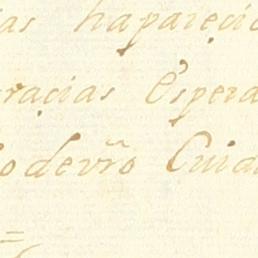 ias haparecid
racias Espera
odevr̃o Cuida